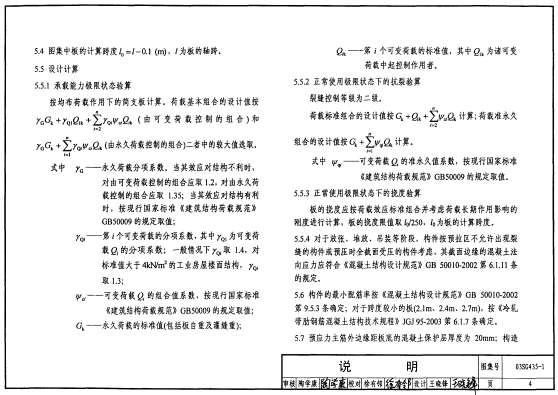 5.4 图集中板的计算跨度 l₀=l−0.1 (m)，l 为板的轴跨。
5.5 设计计算
5.5.1 承载能力极限状态验算
按均布荷载作用下的简支板计算。荷载基本组合的设计值按
γGGk+γQ1Q1k+∑γQiψciQik（由可变荷载控制的组合）和
γGGk+∑γQiψciQik（由永久荷载控制的组合）二者中的较大值选取。
式中 γG——永久荷载分项系数。当其效应对结构不利时，
对由可变荷载控制的组合应取1.2，对由永久荷
载控制的组合应取 1.35；当其效应对结构有利
时，按现行国家标准《建筑结构荷载规范》
GB50009 的规定取值；
γQi——第 i 个可变荷载的分项系数，其中 γQ1 为可变荷
载 Q1 的分项系数；一般情况下 γQi 取 1.4，对
标准值大于 4kN/m²的工业房屋楼面结构，γQi
取 1.3；
ψci——可变荷载 Qi 的组合值系数，按现行国家标准
《建筑结构荷载规范》GB50009 的规定取值；
Gk——永久荷载的标准值(包括板自重及灌缝重)；
Qik——第 i 个可变荷载的标准值，其中 Q1k 为诸可变
荷载中起控制作用者。
5.5.2 正常使用极限状态下的抗裂验算
裂缝控制等级为二级。
荷载标准组合的设计值按 Gk+Q1k+∑ψciQik 计算；荷载准永久
组合的设计值按 Gk+∑ψqiQik 计算。
式中 ψqi——可变荷载 Qi 的准永久值系数，按现行国家标准
《建筑结构荷载规范》GB50009 的规定取值。
5.5.3 正常使用极限状态下的挠度验算
板的挠度应按荷载效应标准组合并考虑荷载长期作用影响的
刚度进行计算，板的挠度限值取 l₀/250，l₀ 为板的计算跨度。
5.5.4 对于放张、堆放、吊装等阶段，构件按预拉区不允许出现裂
缝的构件或预压时全截面受压的构件考虑，其截面边缘的混凝土法
向应力应符合《混凝土结构设计规范》GB 50010-2002 第 6.1.11 条
的规定。
5.6 构件的最小配筋率按《混凝土结构设计规范》GB 50010-2002
第 9.5.3 条确定；对于跨度较小的板(2.1m、2.4m、2.7m)，按《冷轧
带肋钢筋混凝土结构技术规程》JGJ 95-2003 第 6.1.7 条确定。
5.7 预应力主筋外边缘距板底的混凝土保护层厚度为 20mm；构造
说 明 图集号 03SG435-1
审核 陶学康 校对 徐有邻 设计 王晓锋 页 4